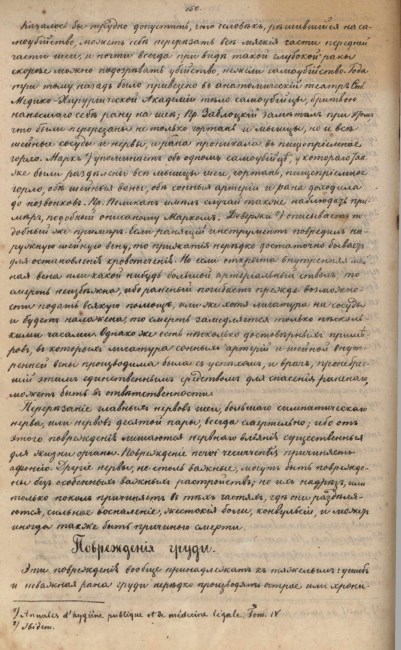 150.
Казалось бы трудно допустить, что человѣкъ, рѣшившійся на са-
моубійство, можетъ себѣ перерѣзать всѣ мягкія части передней
части шеи, и почти всегда при видѣ такой глубокой раны
скорѣе можно подозрѣвать убійство, нежели самоубійство. Года
три тому назадъ было привезено въ анатомическій театръ
Медико-Хирургической Академіи тѣло самоубійцы, бритвою
нанесшаго себѣ рану на шеѣ; Пр. Заблоцкій замѣтилъ при этомъ,
что были перерѣзаны не только гортань и мышцы, но и всѣ
шейные сосуды и нервы и рана проникала въ пищепріемное
горло. Маркъ ¹) упоминаетъ объ одномъ самоубійцѣ, у котораго так-
же были раздѣлены всѣ мышцы шеи, гортань, пищепріемное
горло, обѣ шейныя вены, обѣ сонныя артеріи и рана доходила
до позвонковъ. Пр. Пеликанъ имѣлъ случай также наблюдать при-
мѣръ, подобный описаному Маркомъ. Девержи ²) описываетъ по-
добный же примѣръ. Если ранящій инструментъ повредилъ на-
ружную шейную вену, то прижатія нерѣдко достаточно бываетъ
для остановленія кровотеченія. Но если открыта внутренняя шей-
ная вена или какой нибудь большой артеріальный стволъ, то
смерть неизбѣжна, ибо раненый погибаетъ прежде возможно-
сти подать всякую помощь, или же хотя лигатура на сосуды
и будетъ наложена, то смерть замедляется только нѣсколь-
кими часами. Однако же есть нѣсколько достовѣрныхъ примѣ-
ровъ, въ которыхъ лигатура сонныхъ артерій и шейной внут-
ренней вены производима была съ успѣхомъ, и врачъ, пренебрег-
шій этимъ единственнымъ средствомъ для спасенія раненаго,
можетъ быть въ отвѣтственности.
Перерѣзаніе главныхъ нервовъ шеи, большаго симпатическаго
нерва, или нервовъ десятой пары, всегда смертельно; ибо отъ
этого поврежденія лишаются нервнаго вліянія существенныя
для жизни органы. Поврежденіе причиняетъ
афонію. Другіе нервы, не столь важные, могутъ быть поврежде-
ны безъ особенныхъ важныхъ разстройствъ; но ихъ надрѣзъ, или
только уколъ причиняетъ въ тѣхъ частяхъ, гдѣ они развѣтвля-
ются, сильное воспаленіе, жестокія боли, конвульсіи, и можетъ
иногда также быть причиною смерти.
Поврежденія груди.
Эти поврежденія вообще принадлежатъ къ тяжелымъ: ушибъ
и неважная рана груди нерѣдко производятъ острое или хрони-
¹) Annales d'hygiène publique et de médecine légale. Tom. IV
²) Ibidem.